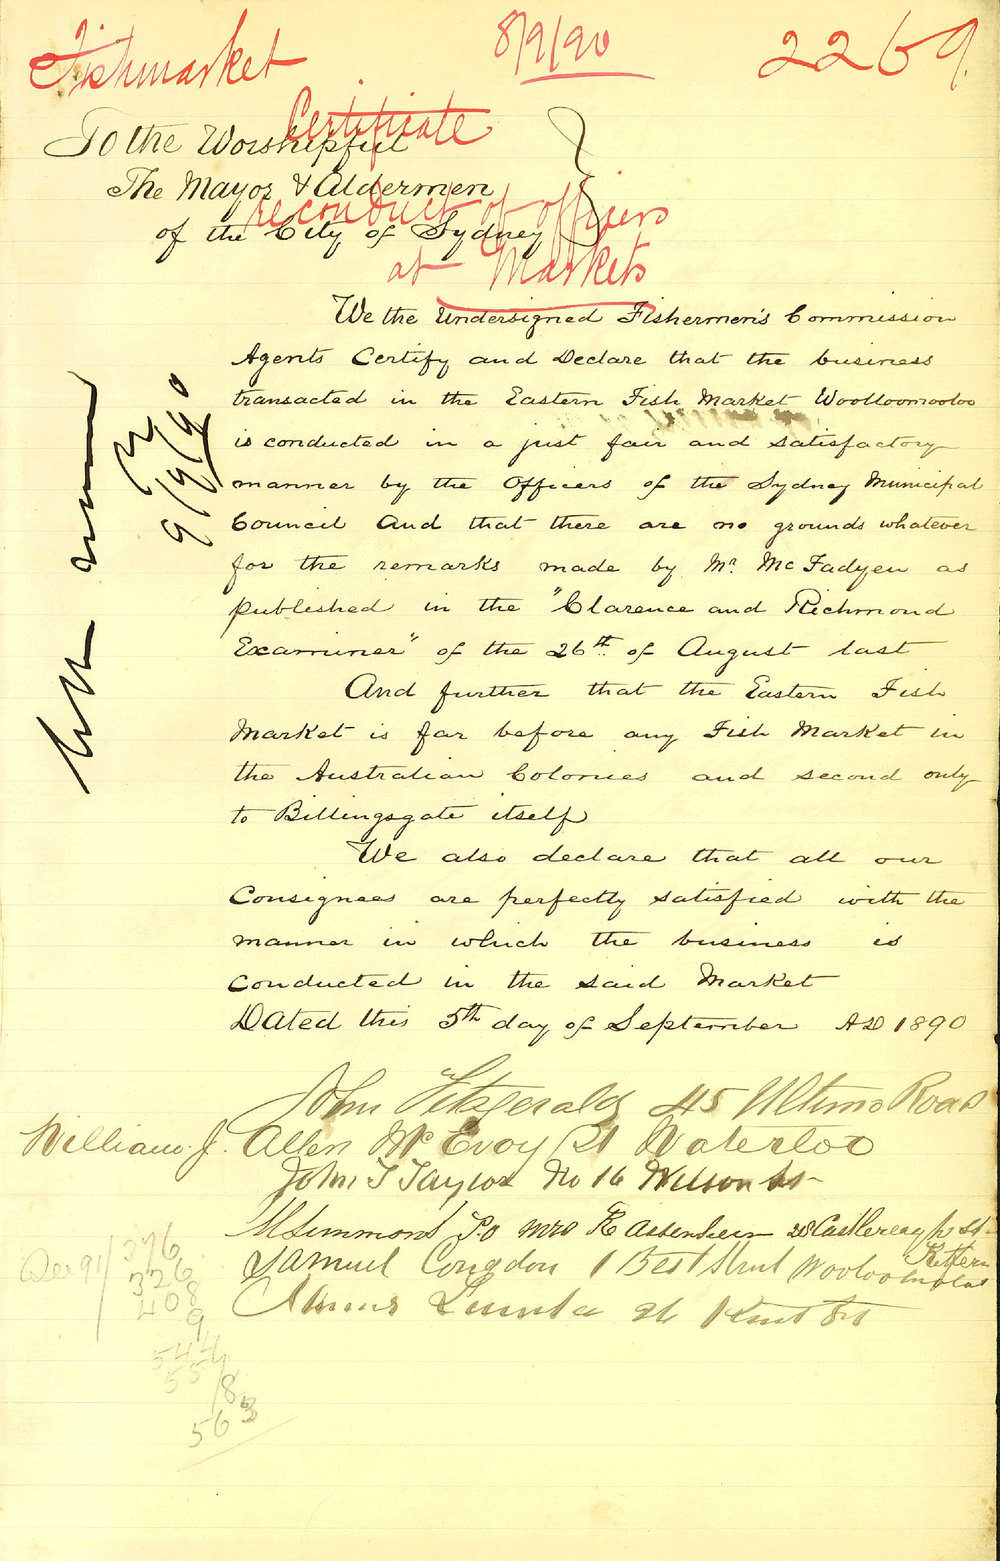 Fishmarket
8/9/90
2269.
Certificate
re conduct of officers
at Markets
To the Worshipful
The Mayor & Aldermen
of the City of Sydney
We the Undersigned Fishermen's Commission
Agents Certify and Declare that the business
transacted in the Eastern Fish Market Woolloomooloo
is conducted in a just fair and satisfactory
manner by the Officers of the Sydney Municipal
Council And that there are no grounds whatever
for the remarks made by Mr. McFadyen as
published in the "Clarence and Richmond
Examiner" of the 26th of August last
And further that the Eastern Fish
Market is far before any Fish Market in
the Australian Colonies and second only
to Billingsgate itself
We also declare that all our
Consignees are perfectly satisfied with the
manner in which the business is
conducted in the said Market
Dated this 5th day of September AD 1890
9/9/90
John Fitzgerald 45 Ultimo Road
William J. Allen McEvoy 21 Waterloo
John T Taylor No 16 Wilson St
M Simmons P.O Mrs R Assenheim 28 Castlereagh St
Redfern
Samuel Congdon 1 Best Street Wooloomoloo
Kent St
Dec 91 / 376
326
408
9
544
554
/8
563